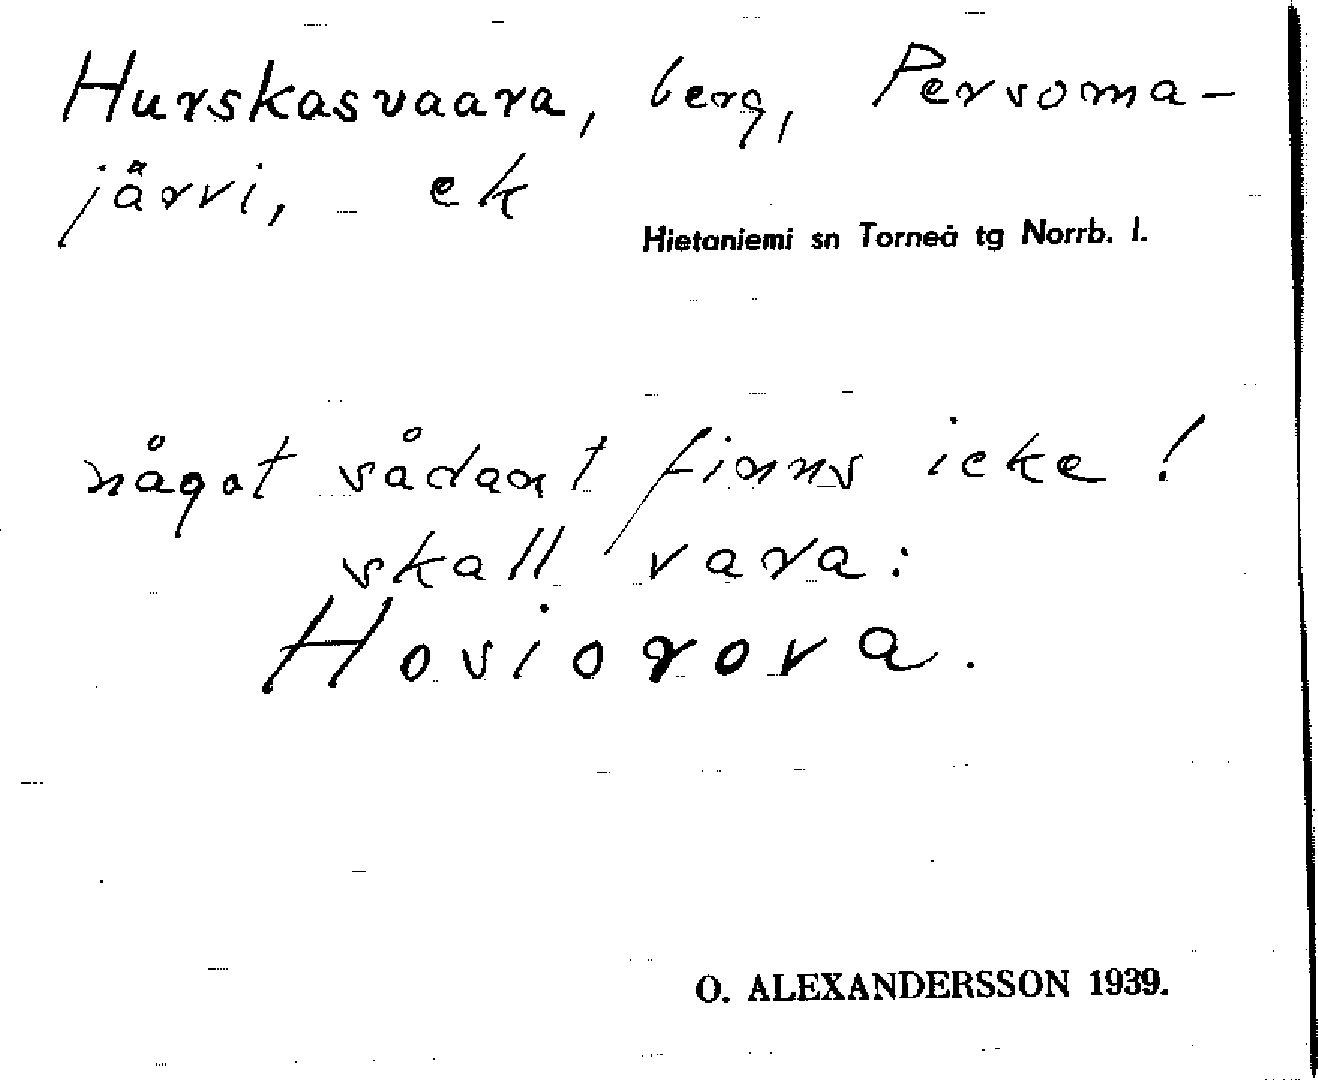 Hurskasvaara, berg, Persoma-
järvi, ek
Hietaniemi sn Torneå tg Norrb. l.
något sådant finns icke!
skall vara:
Hosiorova.
O. ALEXANDERSSON 1939.